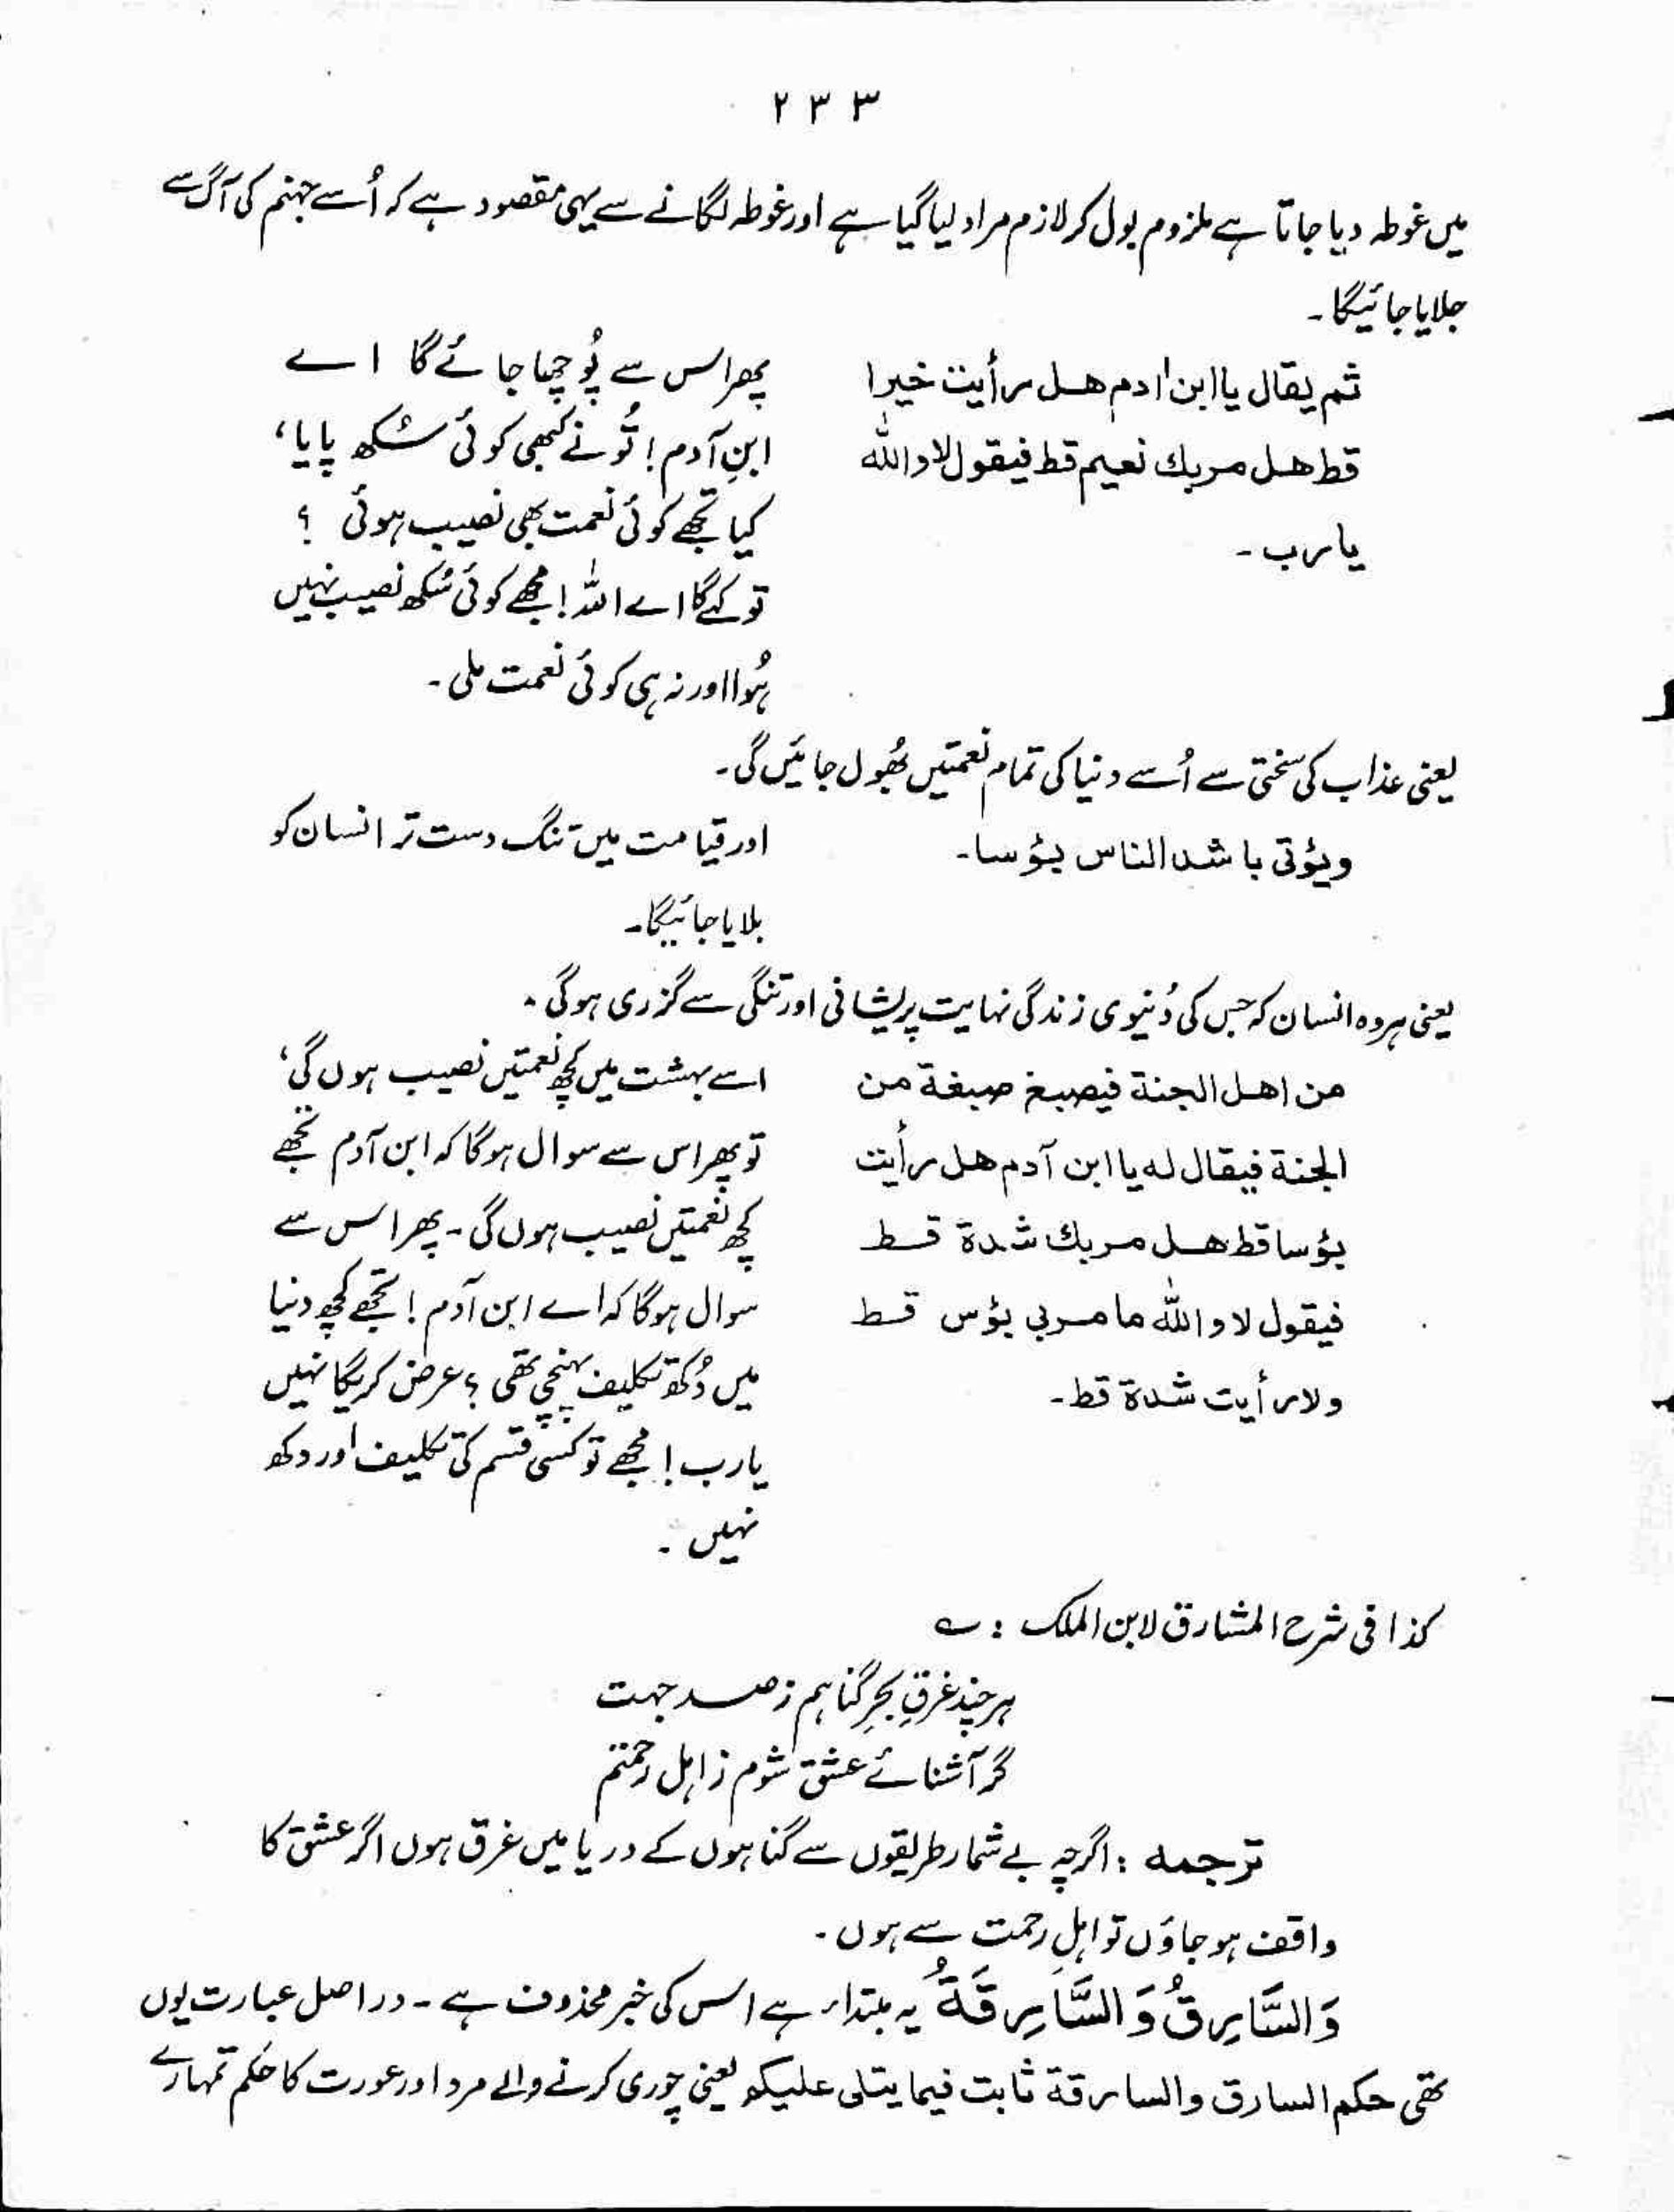 ۲۳۳
میں غوطہ دیا جاتا ہے ملزوم بول کر لازم مراد لیا گیا ہے اور غوطہ لگانے سے یہی مقصود ہے کہ اُسے جہنم کی آگ سے
جلایا جائیگا۔
ثم یقال یا ابن اٰدم هل رأیت خیرا
قط هل مر بك نعیم قط فیقول لا و اللّٰه
یا رب ۔
پھر اس سے پُوچھا جائے گا اے
ابنِ آدم! تُو نے کبھی کوئی سُکھ پایا،
کیا تجھے کوئی نعمت بھی نصیب ہوئی ؟
تو کہے گا اے اللہ! مجھے کوئی سُکھ نصیب نہیں
ہُوا اور نہ ہی کوئی نعمت ملی ۔
یعنی عذاب کی سختی سے اُسے دنیا کی تمام نعمتیں بھُول جائیں گی۔
ویؤتی باشد الناس بؤسا۔
اور قیامت میں تنگ دست تر انسان کو
بلایا جائیگا۔
یعنی ہر وہ انسان کہ جس کی دُنیوی زندگی نہایت پریشانی اور تنگی سے گزری ہوگی ۔
من اهل الجنة فیصبغ صبغة من
الجنة فیقال له یا ابن آدم هل رأیت
بؤسا قط هل مر بك شدة قط
فیقول لا و اللّٰه ما مر بی بؤس قط
ولا رأیت شدة قط۔
اسے بہشت میں کچھ نعمتیں نصیب ہوں گی،
تو پھر اس سے سوال ہوگا کہ ابن آدم تجھے
کچھ نعمتیں نصیب ہوں گی ۔ پھر اس سے
سوال ہوگا کہ اے ابن آدم! تجھے کچھ دنیا
میں دُکھ تکلیف پہنچی تھی ؟ عرض کریگا نہیں
یا رب! مجھے تو کسی قسم کی تکلیف اور دکھ
نہیں ۔
کذا فی شرح المشارق لابن الملک : ؎
ہر چند غرقِ بحرِ گناہم ز صد جہت
گر آشنائے عشق شوم ز اہل رحمتم
ترجمہ : اگرچہ بے شمار طریقوں سے گناہوں کے دریا میں غرق ہوں اگر عشق کا
واقف ہو جاؤں تو اہلِ رحمت سے ہوں ۔
وَالسَّارِقُ وَالسَّارِقَةُ یہ مبتداء ہے اس کی خبر محذوف ہے ۔ دراصل عبارت یوں
تھی حکم السارق والسارقة ثابت فیما یتلی علیکم یعنی چوری کرنے والے مرد اور عورت کا حکم تمہارے